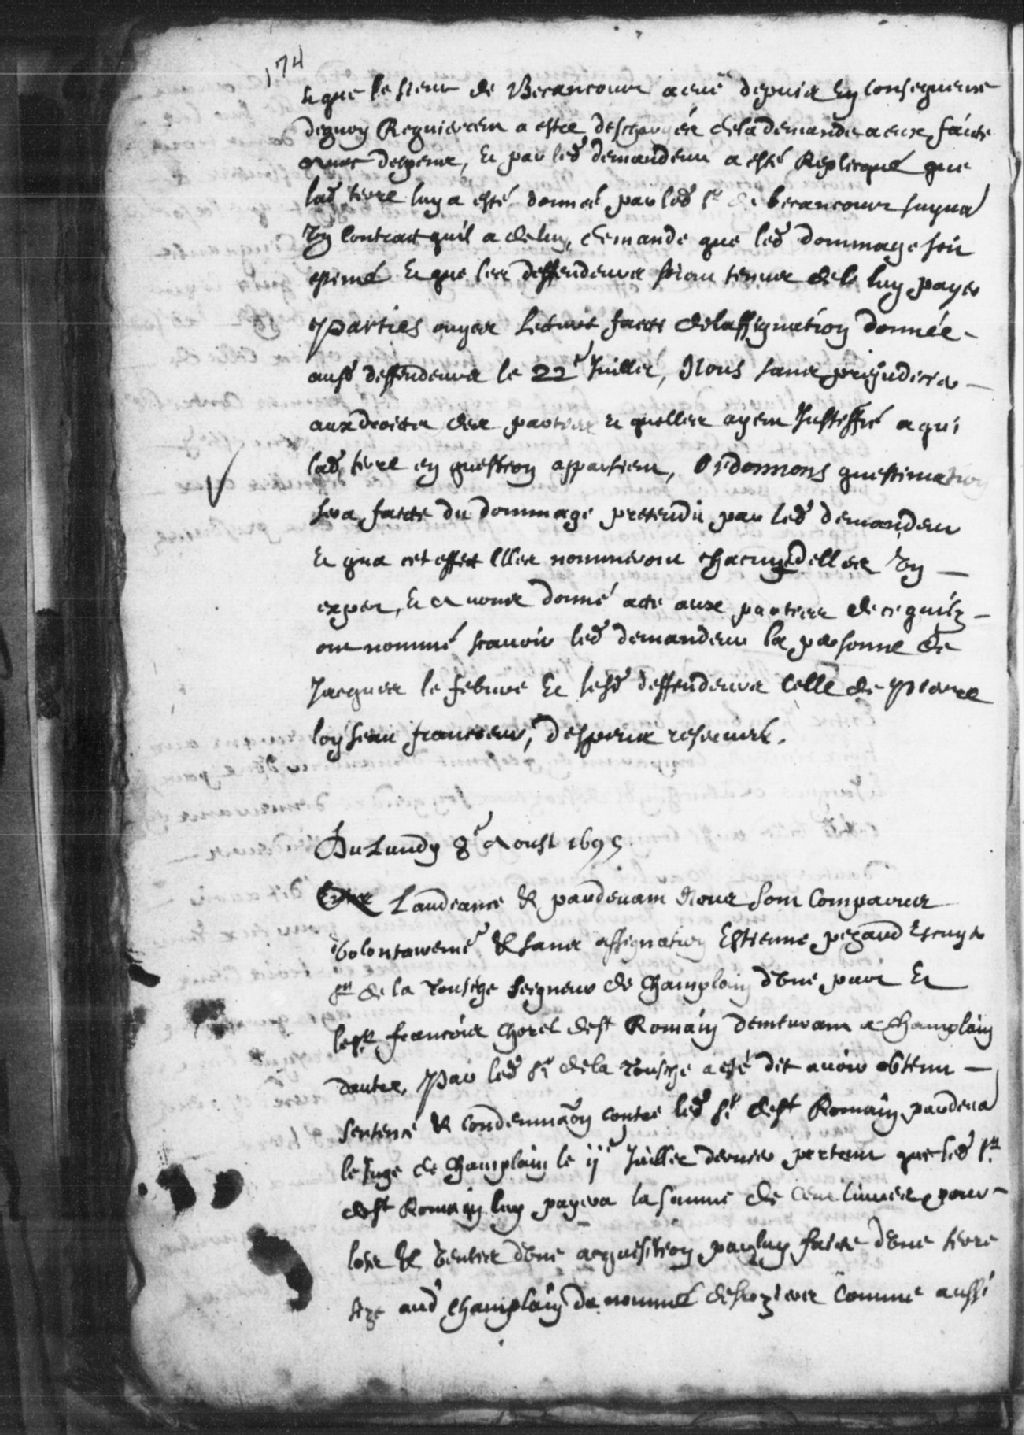 174
Et que le sieur de Becancour a eue depuis En consequence
dequoy Requierent a estre deschargés de la demande a eux faite
avec despens, Et par led demandeur a esté Replicqué que
lad terre luy a esté donnée par led Sr de becancour suyvant
Un Contract quil a de luy, demande que led dommage soit
estimé Et que les deffendeurs soient tenus de le luy payer
Parties ouyes Lecture faite de lassignation donnée
ausd deffendeurs le 22e Juillet, Nous sans prejudicier
aux droits des parties Et quelles ayent Justiffié a qui
lad terre en question appartient, Ordonnons questimation
sera faite du dommage pretendu par led demandeur
Et qua cet effet Elles nommeront chacune delles Un
expert, Et avons donné acte aux parties de ce quils
ont nommé scavoir led demandeur la personne de
Jacques le febvre Et lesd deffendeurs Celle de Pierre
loyseau francoeur, despens reservés.
Du Lundy 8e Aoust 1695
Laudiance Et pardevant Nous sont Comparus
Volontairement Et sans assignation Estienne pezard Escuyer
Sr de la Tousche seigneur de Champlain dUne part Et
le Sr francois Chorel de St Romain demeurant a Champlain
dautre, Par led Sr de la Tousche a esté dit avoir obtenu
sentence de condemnaon contre led Sr de St Romain pardevant
le Juge de Champlain le ije Juillet dernier portant que led Sr
de St Romain luy payera la somme de Cent livres pour
lots Et Ventes dUne acquisition par luy faite dUne terre
size aud Champlain du nommé desroziers Comme aussi